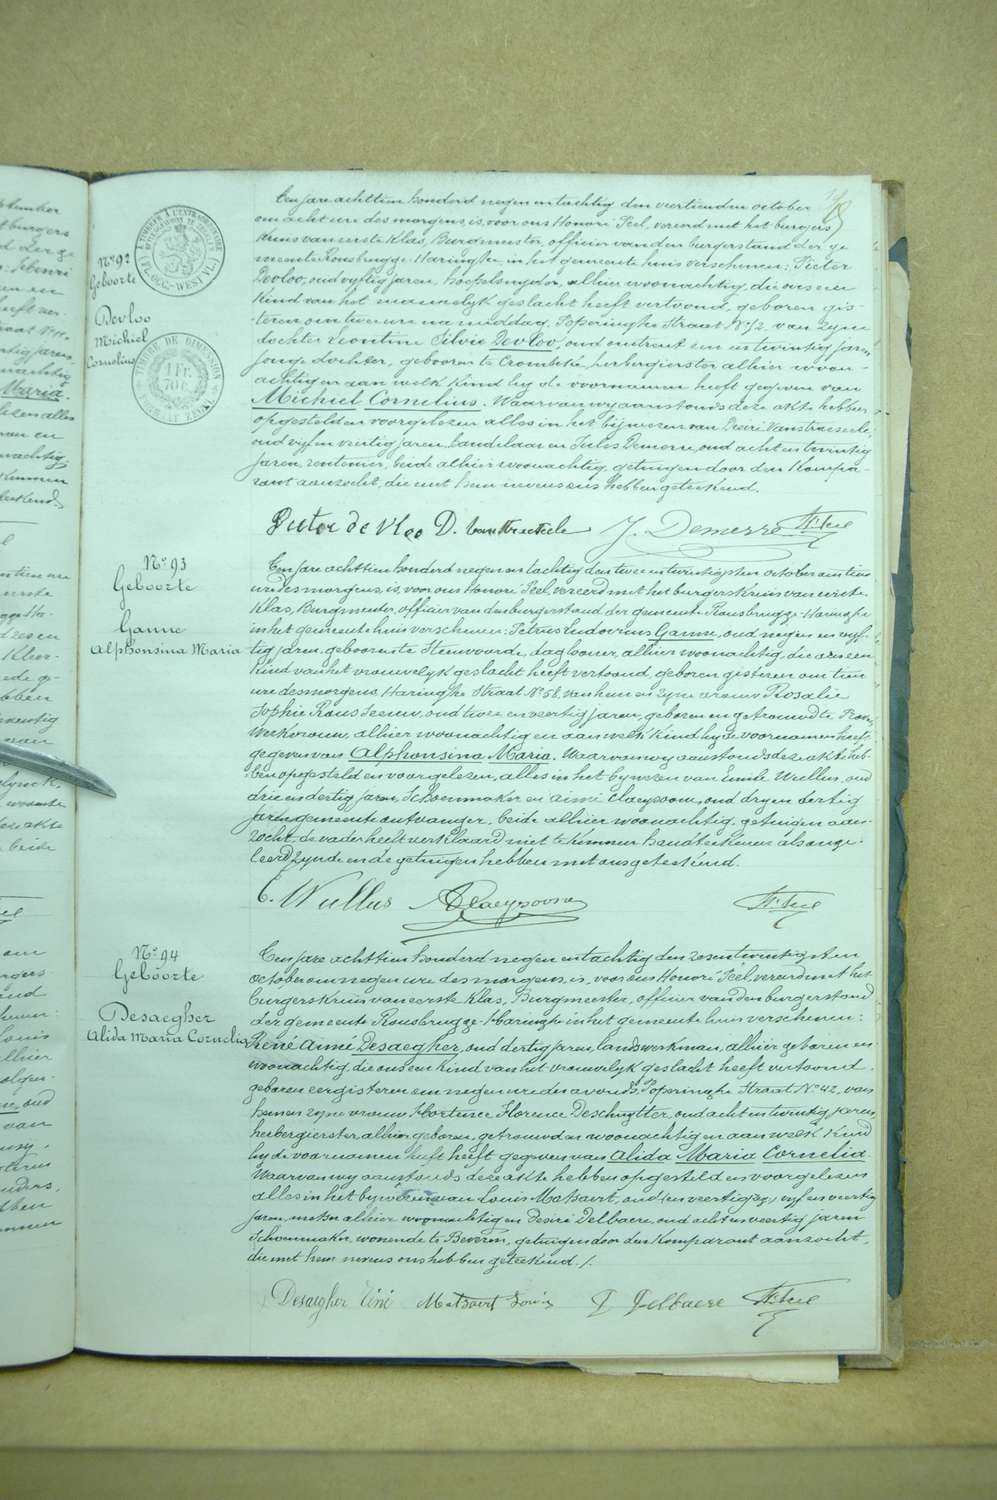 Nº 92
Geboorte
Devloo
Michiel
Cornelius
TIMBRE DE DIMENSION
1 Fr.
70 C.
Ten jare achttien honderd negen en tachtig den viertienden october
om acht ure des morgens, is, voor ons Honoré Peel, vereerd met het burgers
kruis van eerste klas, Burgmeester, officier van den burgerstand der ge
meente Rousbrugge-Haringhe, in het gemeente huis verschenen: Pieter
Devloo, oud vyftig jaren, hoepelsnyder, alhier woonachtig, die ons een
kind van het mannelyk geslacht heeft vertoond, geboren gis-
teren om twee ure na middag, Poperinghe Straat Nº 72, van zyne
dochter Leontine Silvie Devloo, oud omtrent een en twintig jaren
jonge dochter, geboren te Crombeke, herbergierster alhier woon-
achtig en aan welk kind hy de voornamen heeft gegeven van
Michiel Cornelius. Waarvan wy aanstonds deze akte hebben
opgesteld en voorgelezen alles in het bywezen van Desiré Vanstraeseele,
oud vyf en veertig jaren, landelaar en Jules Demerre, oud acht en twintig
jaren, rentenier, beide alhier woonachtig, getuigen door den Kompa-
rant aanzocht, die met hem nevens ons hebben geteekend.
Pieter de Vloo D. Vanstraeseele J. Demerre H. Peel
Nº 93
Geboorte
Ganne
Alphonsina Maria
Ten jare achttien honderd negen en tachtig den twee en twintigsten october om tien
ure des morgens, is, voor ons Honoré Peel, vereerd met het burgerskruis van eerste
Klas, Burgmeester, officier van den burgerstand der gemeente Rousbrugge-Haringhe
in het gemeente huis verschenen: Petrus Ludovicus Ganne, oud negen en vyf-
tig jaren, geboren te Steenvoorde, daglooner, alhier woonachtig, die ons een
kind van het vrouwelyk geslacht heeft vertoond, geboren gisteren om tien
ure des morgens, Haringhe Straat Nº 58, van hem en zyne vrouw Rosalie
Sophie Rous Seeuw, oud twee en veertig jaren, geboren en getrouwd te
alhier woonachtig en aan welk kind hy de voornamen heeft
gegeven van Alphonsina Maria. Waarvan wy aanstonds deze akte heb-
ben opgesteld en voorgelezen, alles in het bywezen van Emile Wullus, oud
drie en dertig jaren, Schoenmaker en Aimé Claeysoone, oud dry en dertig
jaren gemeente ontvanger, beide alhier woonachtig, getuigen aan-
zocht, de vader heeft verklaard niet te kunnen handteekenen als onge-
leerd zynde en de getuigen hebben met ons geteekend.
E. Wullus A Claeysoone H. Peel
Nº 94
Geboorte
Desaegher
Alida Maria Cornelia
Ten jare achttien honderd negen en tachtig den zesentwintigsten
october om negen ure des morgens, is, voor ons Honoré Peel, vereerd met het
burgerskruis van eerste klas, Burgmeester, officier van den burgerstand
der gemeente Rousbrugge-Haringhe in het gemeente huis verschenen:
René Aimé Desaegher, oud dertig jaren, landswerkman, alhier geboren en
woonachtig, die ons een kind van het vrouwelyk geslacht heeft vertoond,
geboren eergisteren om negen ure des avonds, Poperinghe Straat Nº 42, van
hem en zyne vrouw Hortence Florence Deschuytter, oud acht en twintig jaren,
herbergierster, alhier geboren, getrouwd en woonachtig en aan welk Kind
hy de voornamen heeft heeft gegeven van Alida Maria Cornelia.
Waarvan wy aanstonds deze akte hebben opgesteld en voorgelezen
alles in het bywezen van Louis Matsaert, oud (en veertig zy) vyf en veertig
jaren, metser alhier woonachtig en Desiré Delbaere, oud acht en veertig jaren
Schoenmaker, wonende te Beveren, getuigen door den Komparant aanzocht,
die met hem nevens ons hebben geteekend./.
Desaegher Réné Matsaert Louis D Delbaere H. Peel